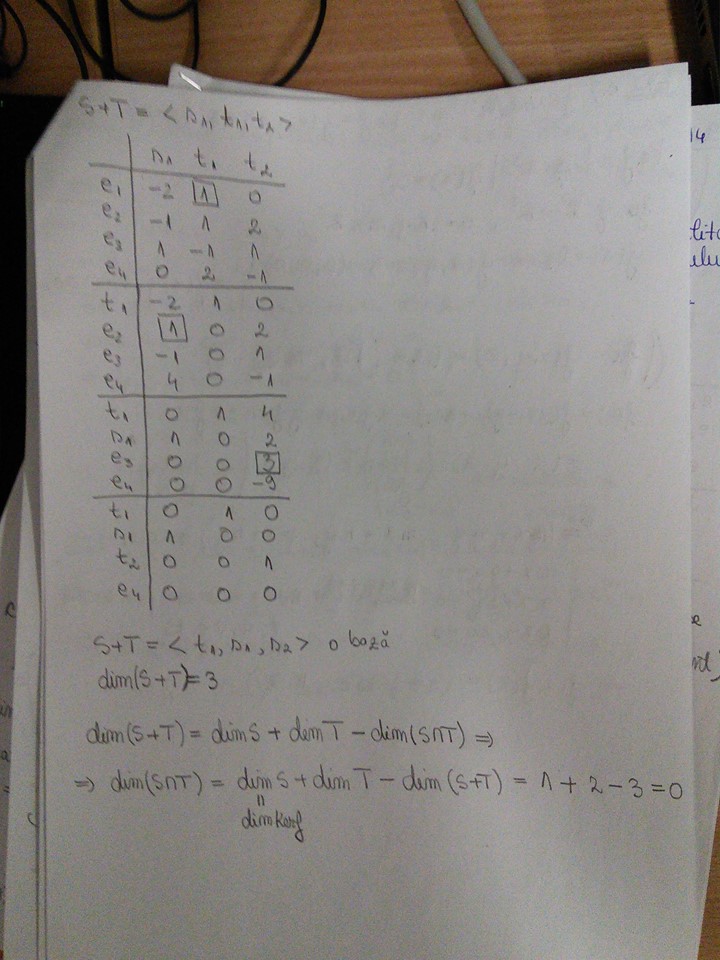 S+T = < s1, t1, t2 >
s1 t1 t2
e1 -2 1 0
e2 -1 1 2
e3 1 -1 1
e4 0 2 -1
t1 -2 1 0
e2 1 0 2
e3 -1 0 1
e4 4 0 -1
t1 0 1 4
s1 1 0 2
e3 0 0 3
e4 0 0 -9
t1 0 1 0
s1 1 0 0
t2 0 0 1
e4 0 0 0
S+T = < t1, s1, s2 > o bază
dim(S+T)=3
dim(S+T) = dim S + dim T - dim(S∩T) ⇒
⇒ dim(S∩T) = dim S + dim T - dim (S+T) = 1 + 2 - 3 = 0
=
dim Kerf
14